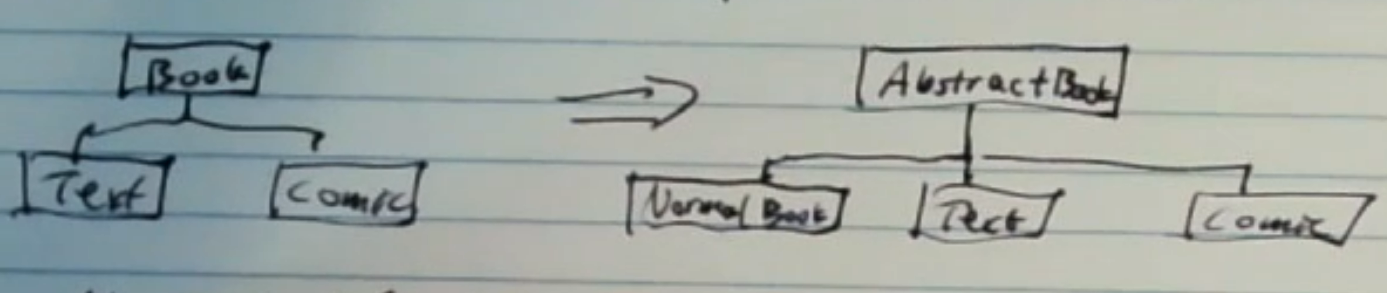 Book
Text
Comic
AbstractBook
Normal Book
Text
Comic